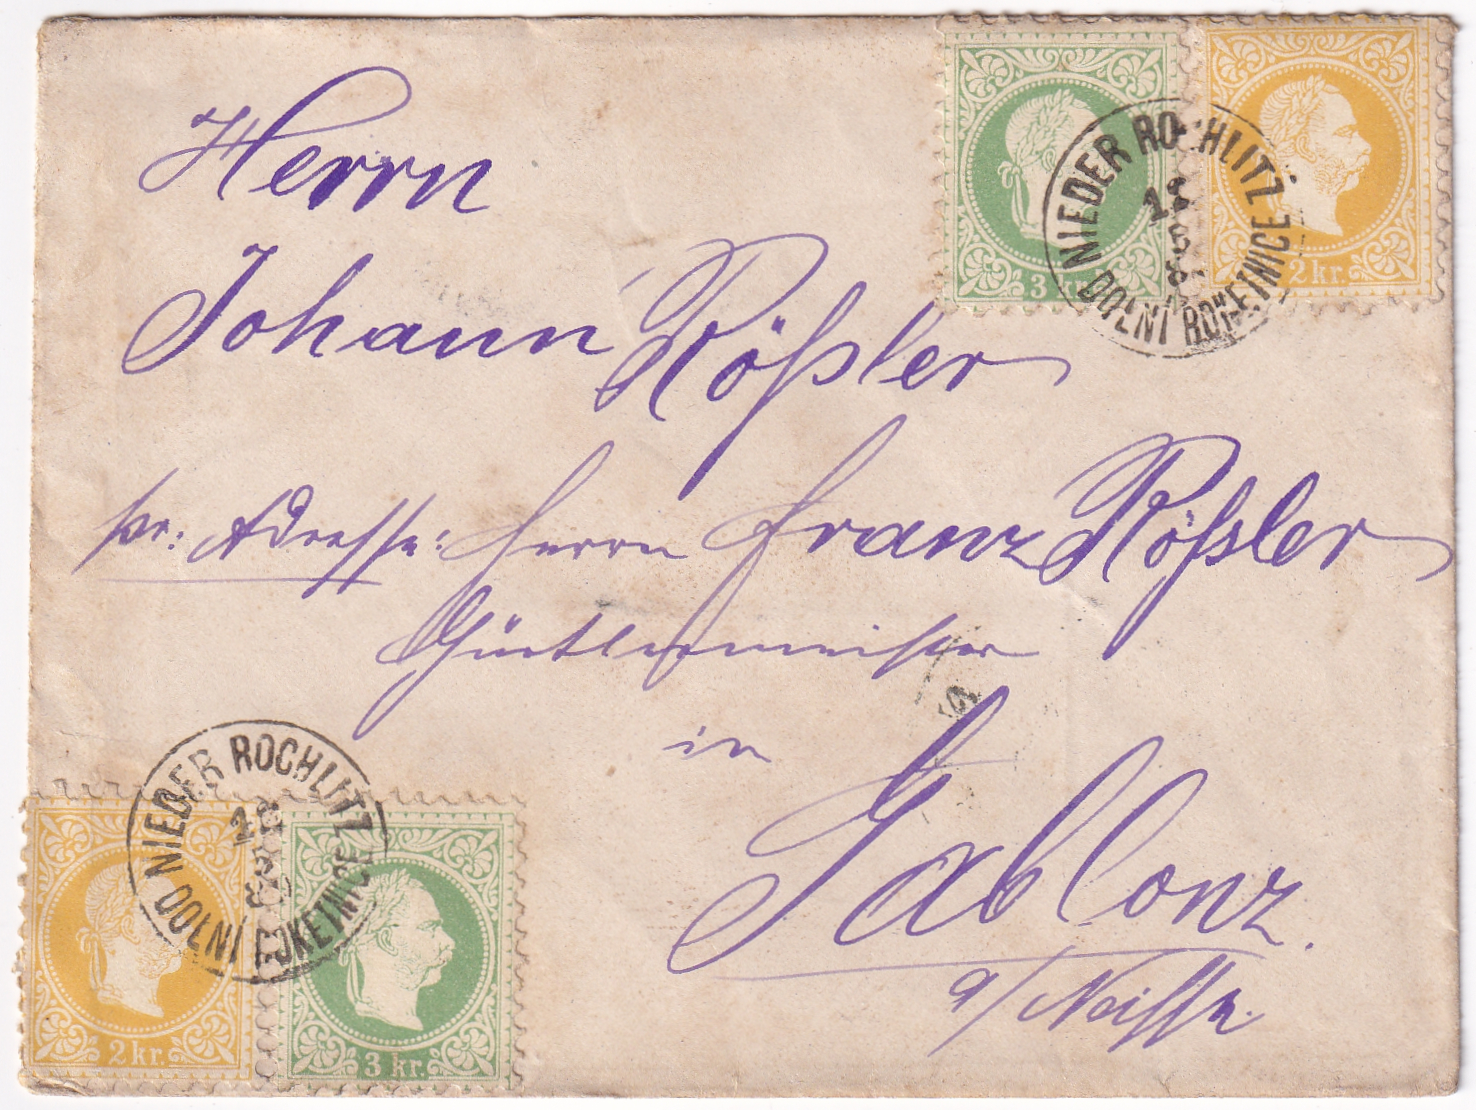 Herrn
Johann Rößler
pr: Adresse: Herrn Franz Rößler
Gürtlermeister
in
Gablonz.
a/Neisse.
3 kr.
2 kr.
NIEDER ROCHLITZ
12
5
DOLNÍ ROKETNICE
NIEDER ROCHLITZ
12
5
DOLNÍ ROKETNICE
2 kr.
3 kr.